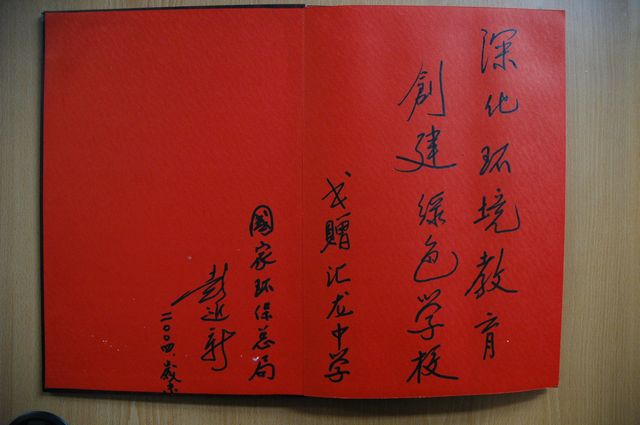 深化环境教育
創建绿色学校
书贈汇龙中学
國家环保总局
彭近新
二〇〇四岁末